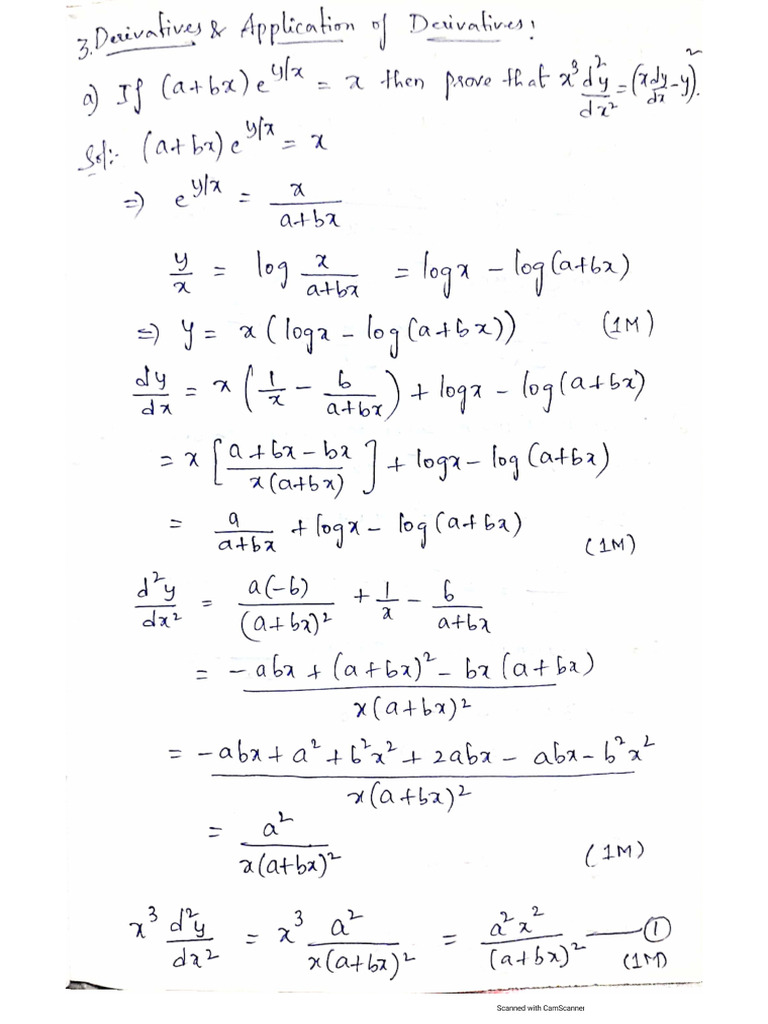 3. Derivatives & Application of Derivatives:
a) If (a+bx) e^{y/x} = x then prove that x³ d²y/dx² = (x dy/dx - y)².
Sol:- (a+bx) e^{y/x} = x
⇒ e^{y/x} = x/(a+bx)
y/x = log x/(a+bx) = log x - log(a+bx)
⇒ y = x(log x - log(a+bx)) (1M)
dy/dx = x(1/x - b/(a+bx)) + log x - log(a+bx)
= x[(a+bx-bx)/(x(a+bx))] + log x - log(a+bx)
= a/(a+bx) + log x - log(a+bx) (1M)
d²y/dx² = a(-b)/(a+bx)² + 1/x - b/(a+bx)
= (-abx + (a+bx)² - bx(a+bx))/(x(a+bx)²)
= (-abx + a² + b²x² + 2abx - abx - b²x²)/(x(a+bx)²)
= a²/(x(a+bx)²) (1M)
x³ d²y/dx² = x³ a²/(x(a+bx)²) = a²x²/(a+bx)² —① (1M)
Scanned with CamScanner